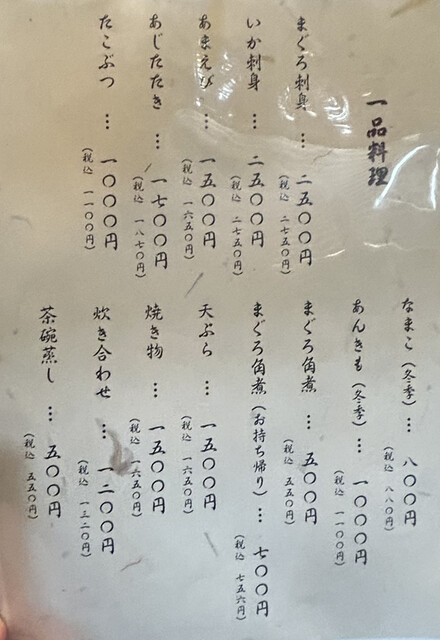 一品料理
まぐろ刺身 … 二五〇〇円
（税込 二七五〇円）
いか刺身 … 二五〇〇円
（税込 二七五〇円）
あまえび … 一五〇〇円
（税込 一六五〇円）
あじたたき … 一七〇〇円
（税込 一八七〇円）
たこぶつ … 一〇〇〇円
（税込 一一〇〇円）
なまこ（冬季）… 八〇〇円
（税込 八八〇円）
あんきも（冬季）… 一〇〇〇円
（税込 一一〇〇円）
まぐろ角煮 … 五〇〇円
（税込 五五〇円）
まぐろ角煮（お持ち帰り）… 七〇〇円
（税込 七五六円）
天ぷら … 一五〇〇円
（税込 一六五〇円）
焼き物 … 一五〇〇円
（税込 一六五〇円）
炊き合わせ … 一二〇〇円
（税込 一三二〇円）
茶碗蒸し … 五〇〇円
（税込 五五〇円）